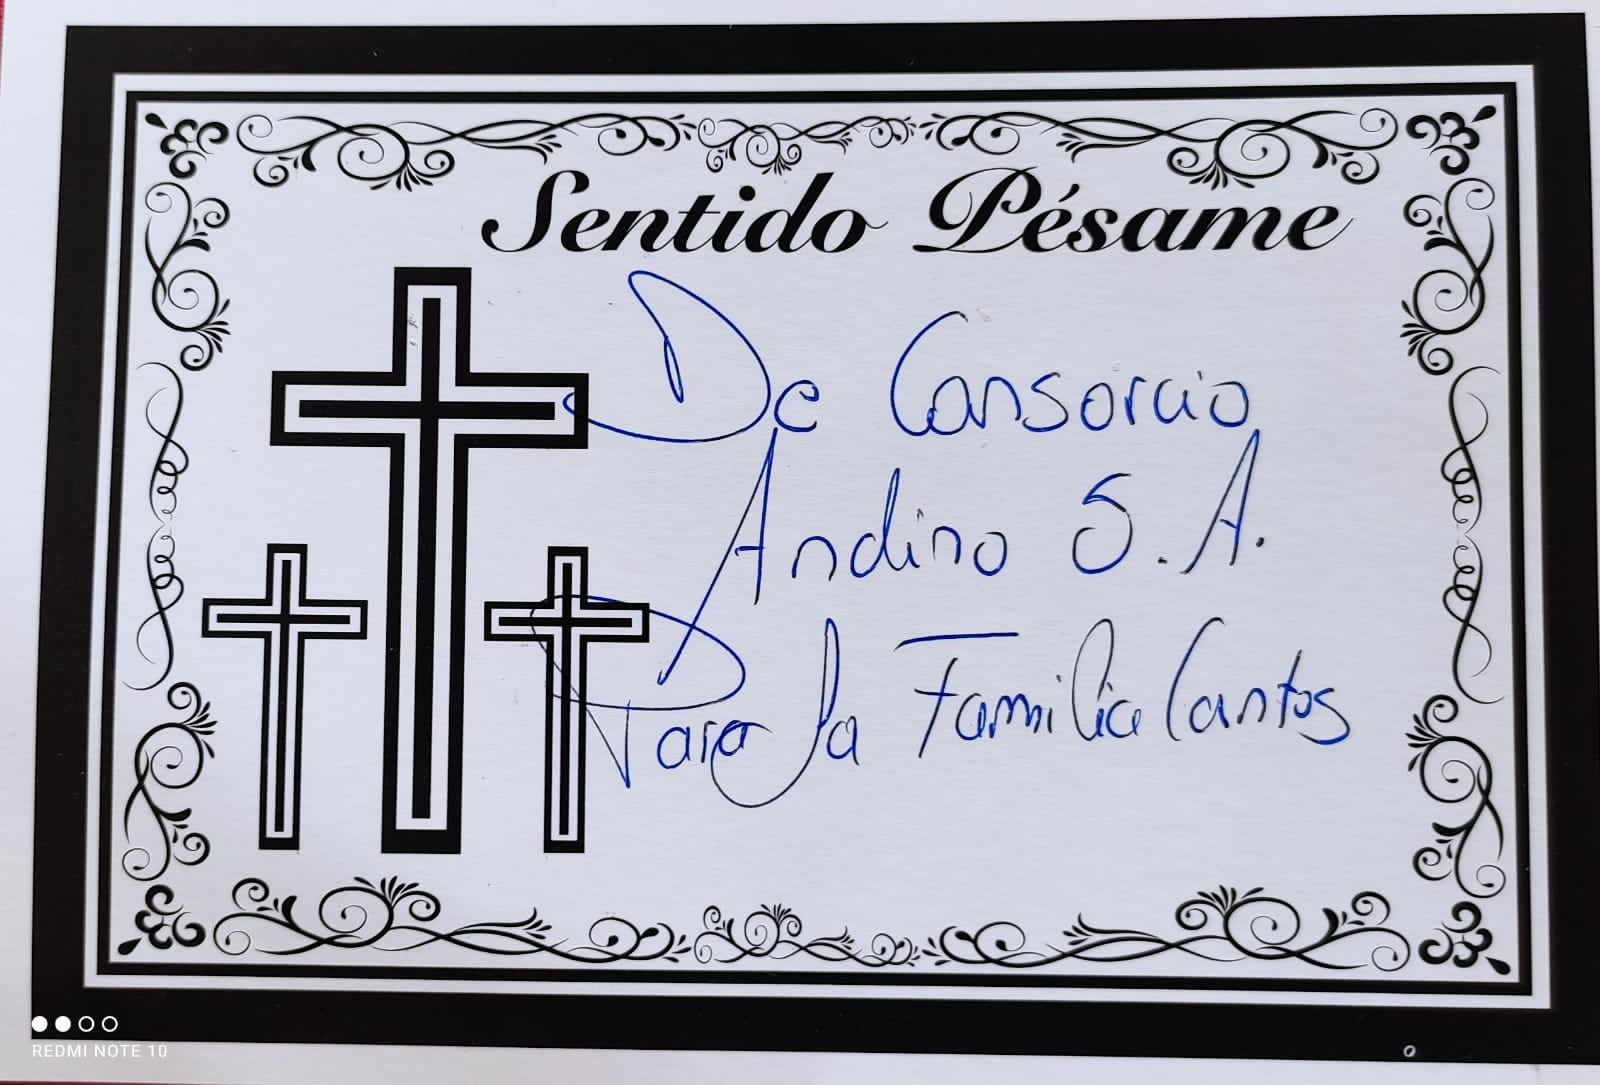 Sentido Pésame
De Consorcio
Andino S.A.
Para la Familia Cantos
REDMI NOTE 10